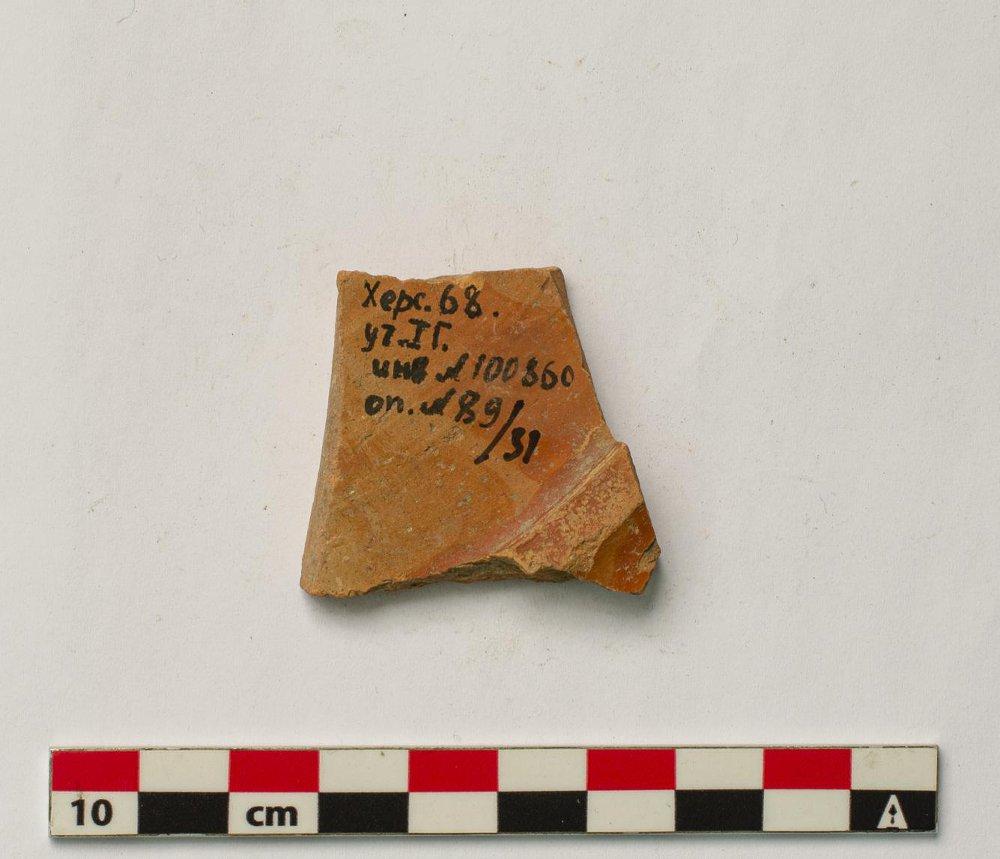 Херс. 68.
уч. IГ.
инв № 100860
оп. № 89/31
10 cm
A